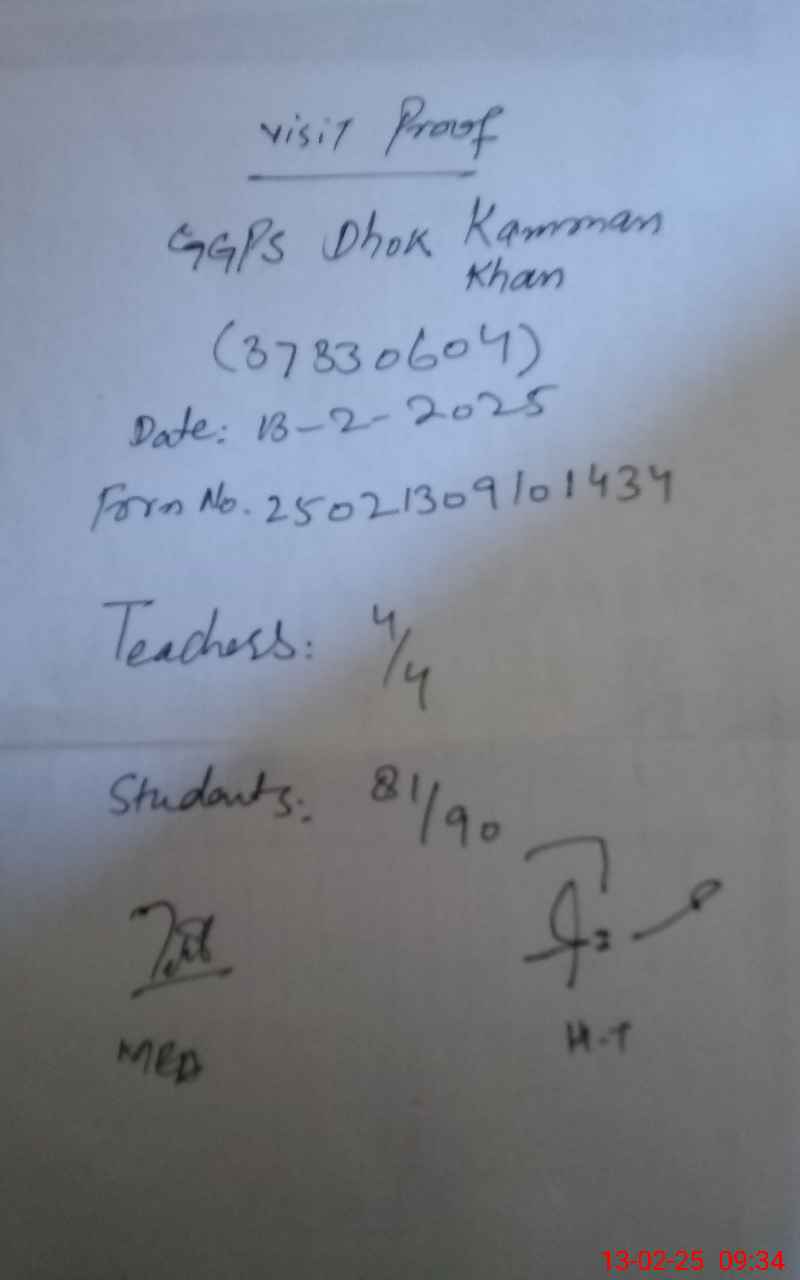 Visit Proof
GGPS Dhok Kamman
Khan
(37330604)
Date: 13-2-2025
Form No. 25021309101434
Teachers: 4/4
Students: 81/90
MEA
H.T
13-02-25 09:34